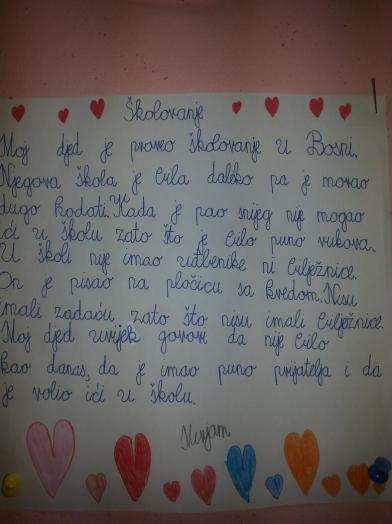 Školovanje
Moj djed je proveo školovanje u Bosni.
Njegova škola je bila daleko pa je morao
dugo hodati. Kada je pao snijeg nije mogao
ići u školu zato što je bilo puno vukova.
U školi nije imao udžbenike ni bilježnice.
On je pisao na pločicu sa kredom. Nisu
imali zadaću, zato što nisu imali bilježnice.
Moj djed uvijek govori da nije bilo
kao danas, da je imao puno prijatelja i da
je volio ići u školu.